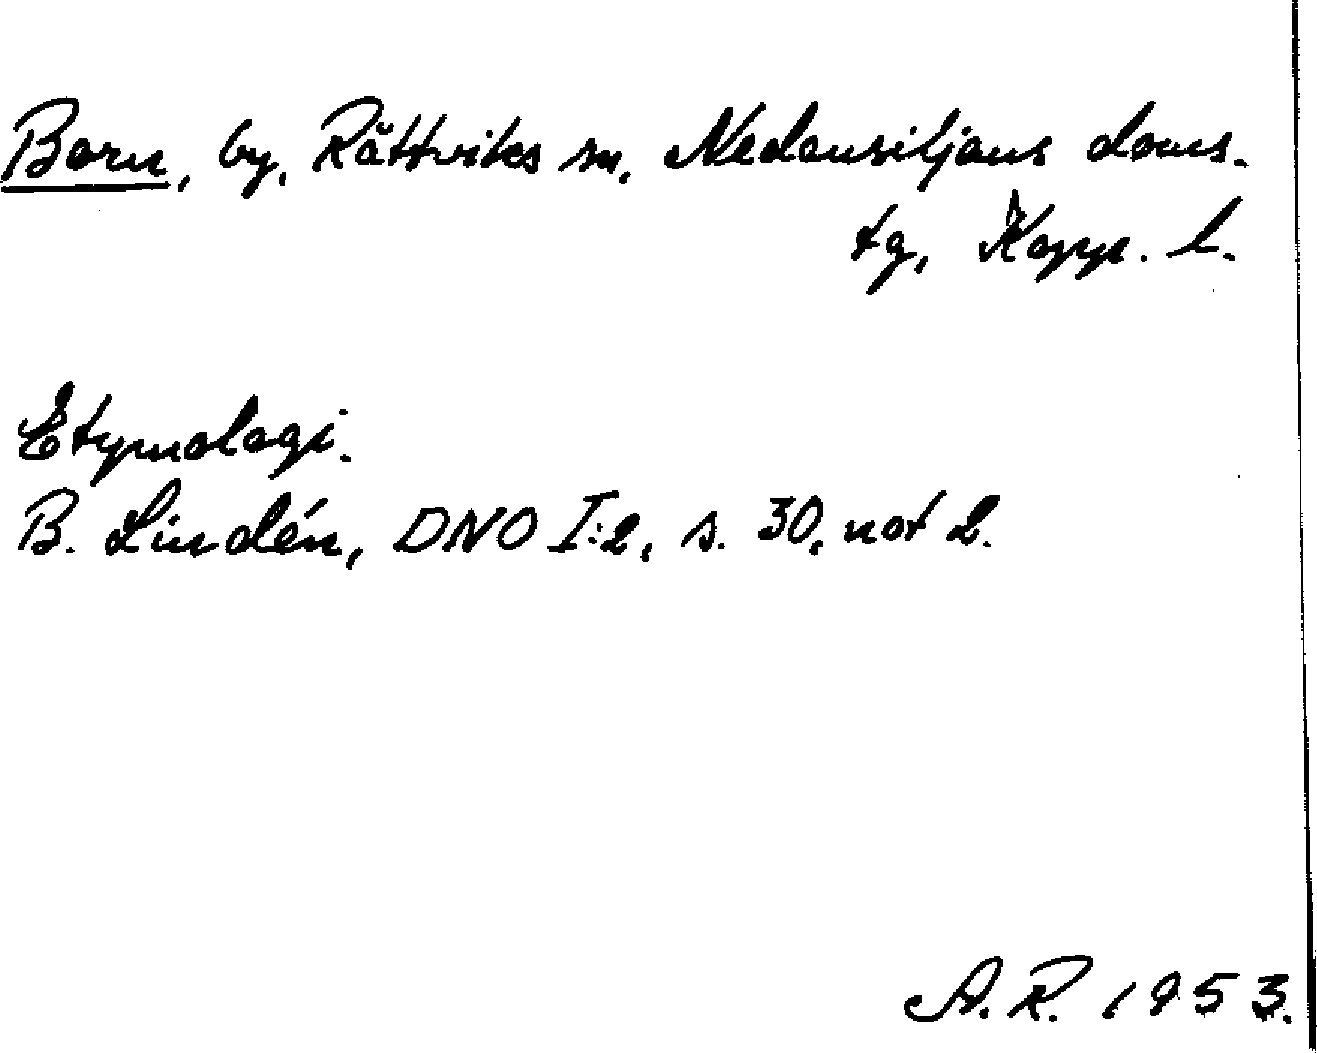 Born, by, Rättviks sn, Nedansiljans doms.
tg, Kopp. l.
Etymologi.
B. Lindén, DNO I:2, s. 30, not 2.
A.R. 1953.